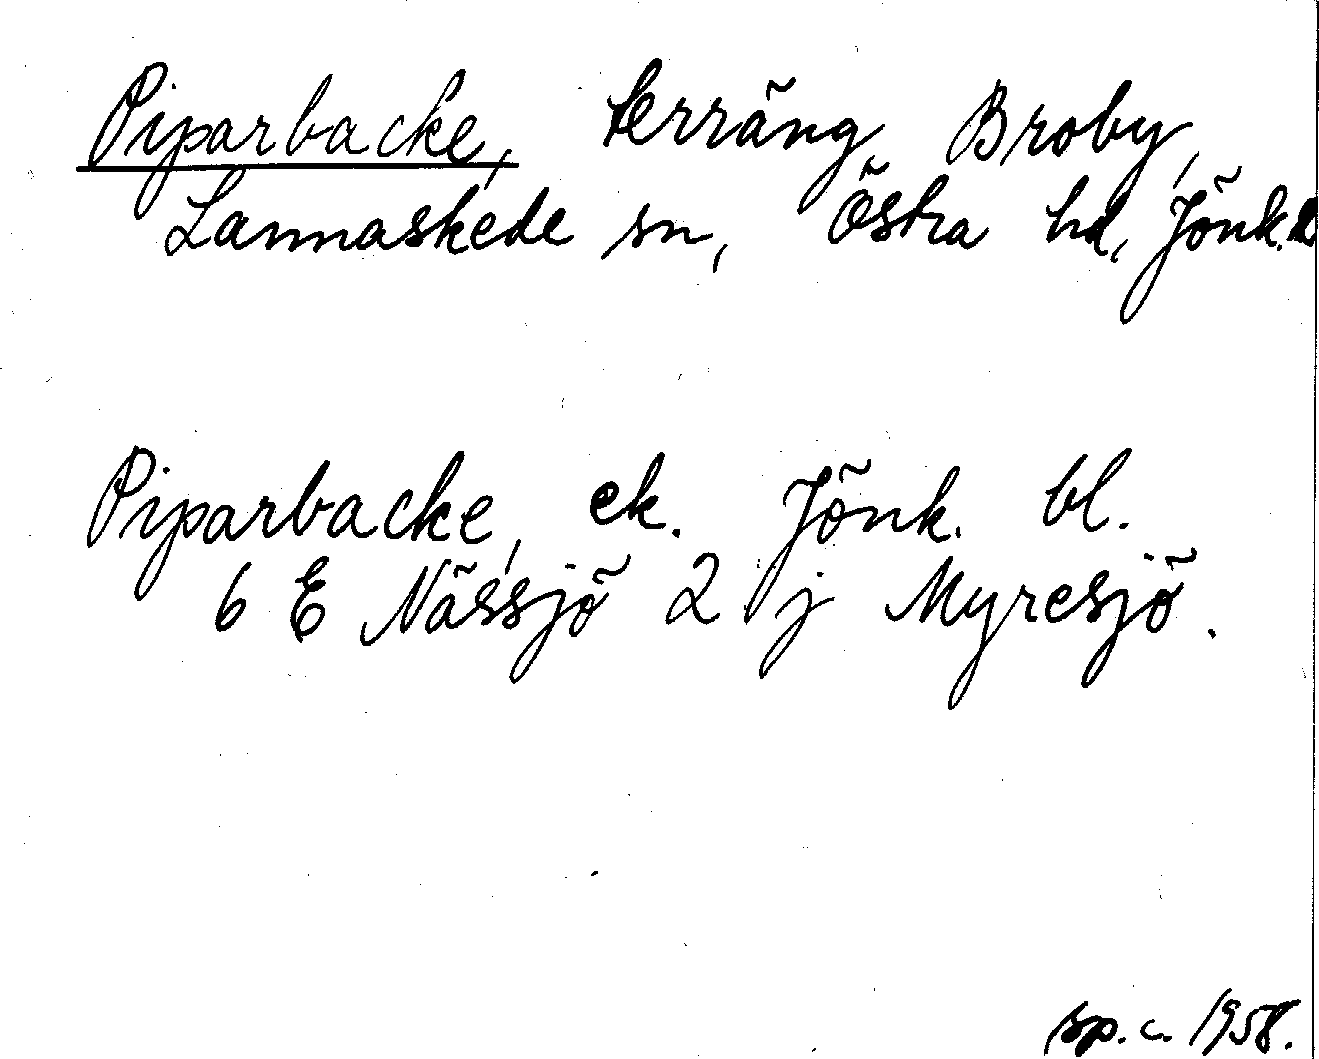 Piparbacke, terräng, Broby,
Lannaskede sn, Östra hd, Jönk.
Piparbacke, ek. Jönk. bl.
6 E Nässjö 2 j Myresjö.
sp.c. 1958.